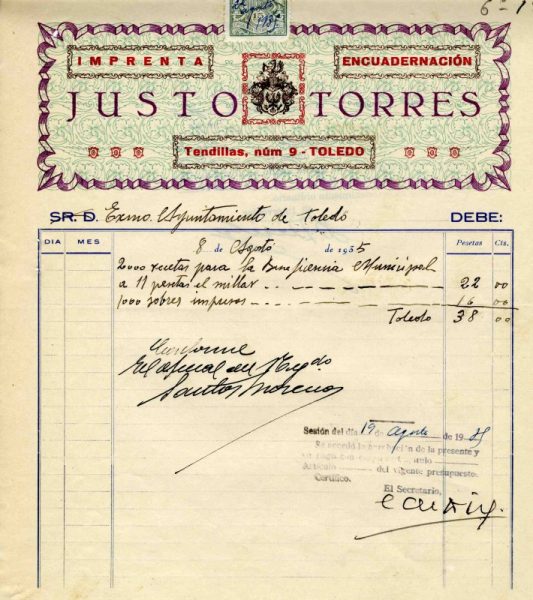 IMPRENTA
ENCUADERNACIÓN
JUSTO TORRES
Tendillas, núm 9 - TOLEDO
SR. D. Exmo. Ayuntamiento de Toledo DEBE:
DIA MES Pesetas Cts.
8 de Agosto de 1935
2000 recetas para la Beneficencia Municipal
a 11 pesetas el millar 22 00
1000 sobres impresos 16 00
Toledo 38 00
Conforme
Santos Moreno
Sesión del día 19 de Agosto de 1935
Se acordó la aprobación de la presente y
su pago con cargo al
Artículo del vigente presupuesto.
Certifico.
El Secretario,